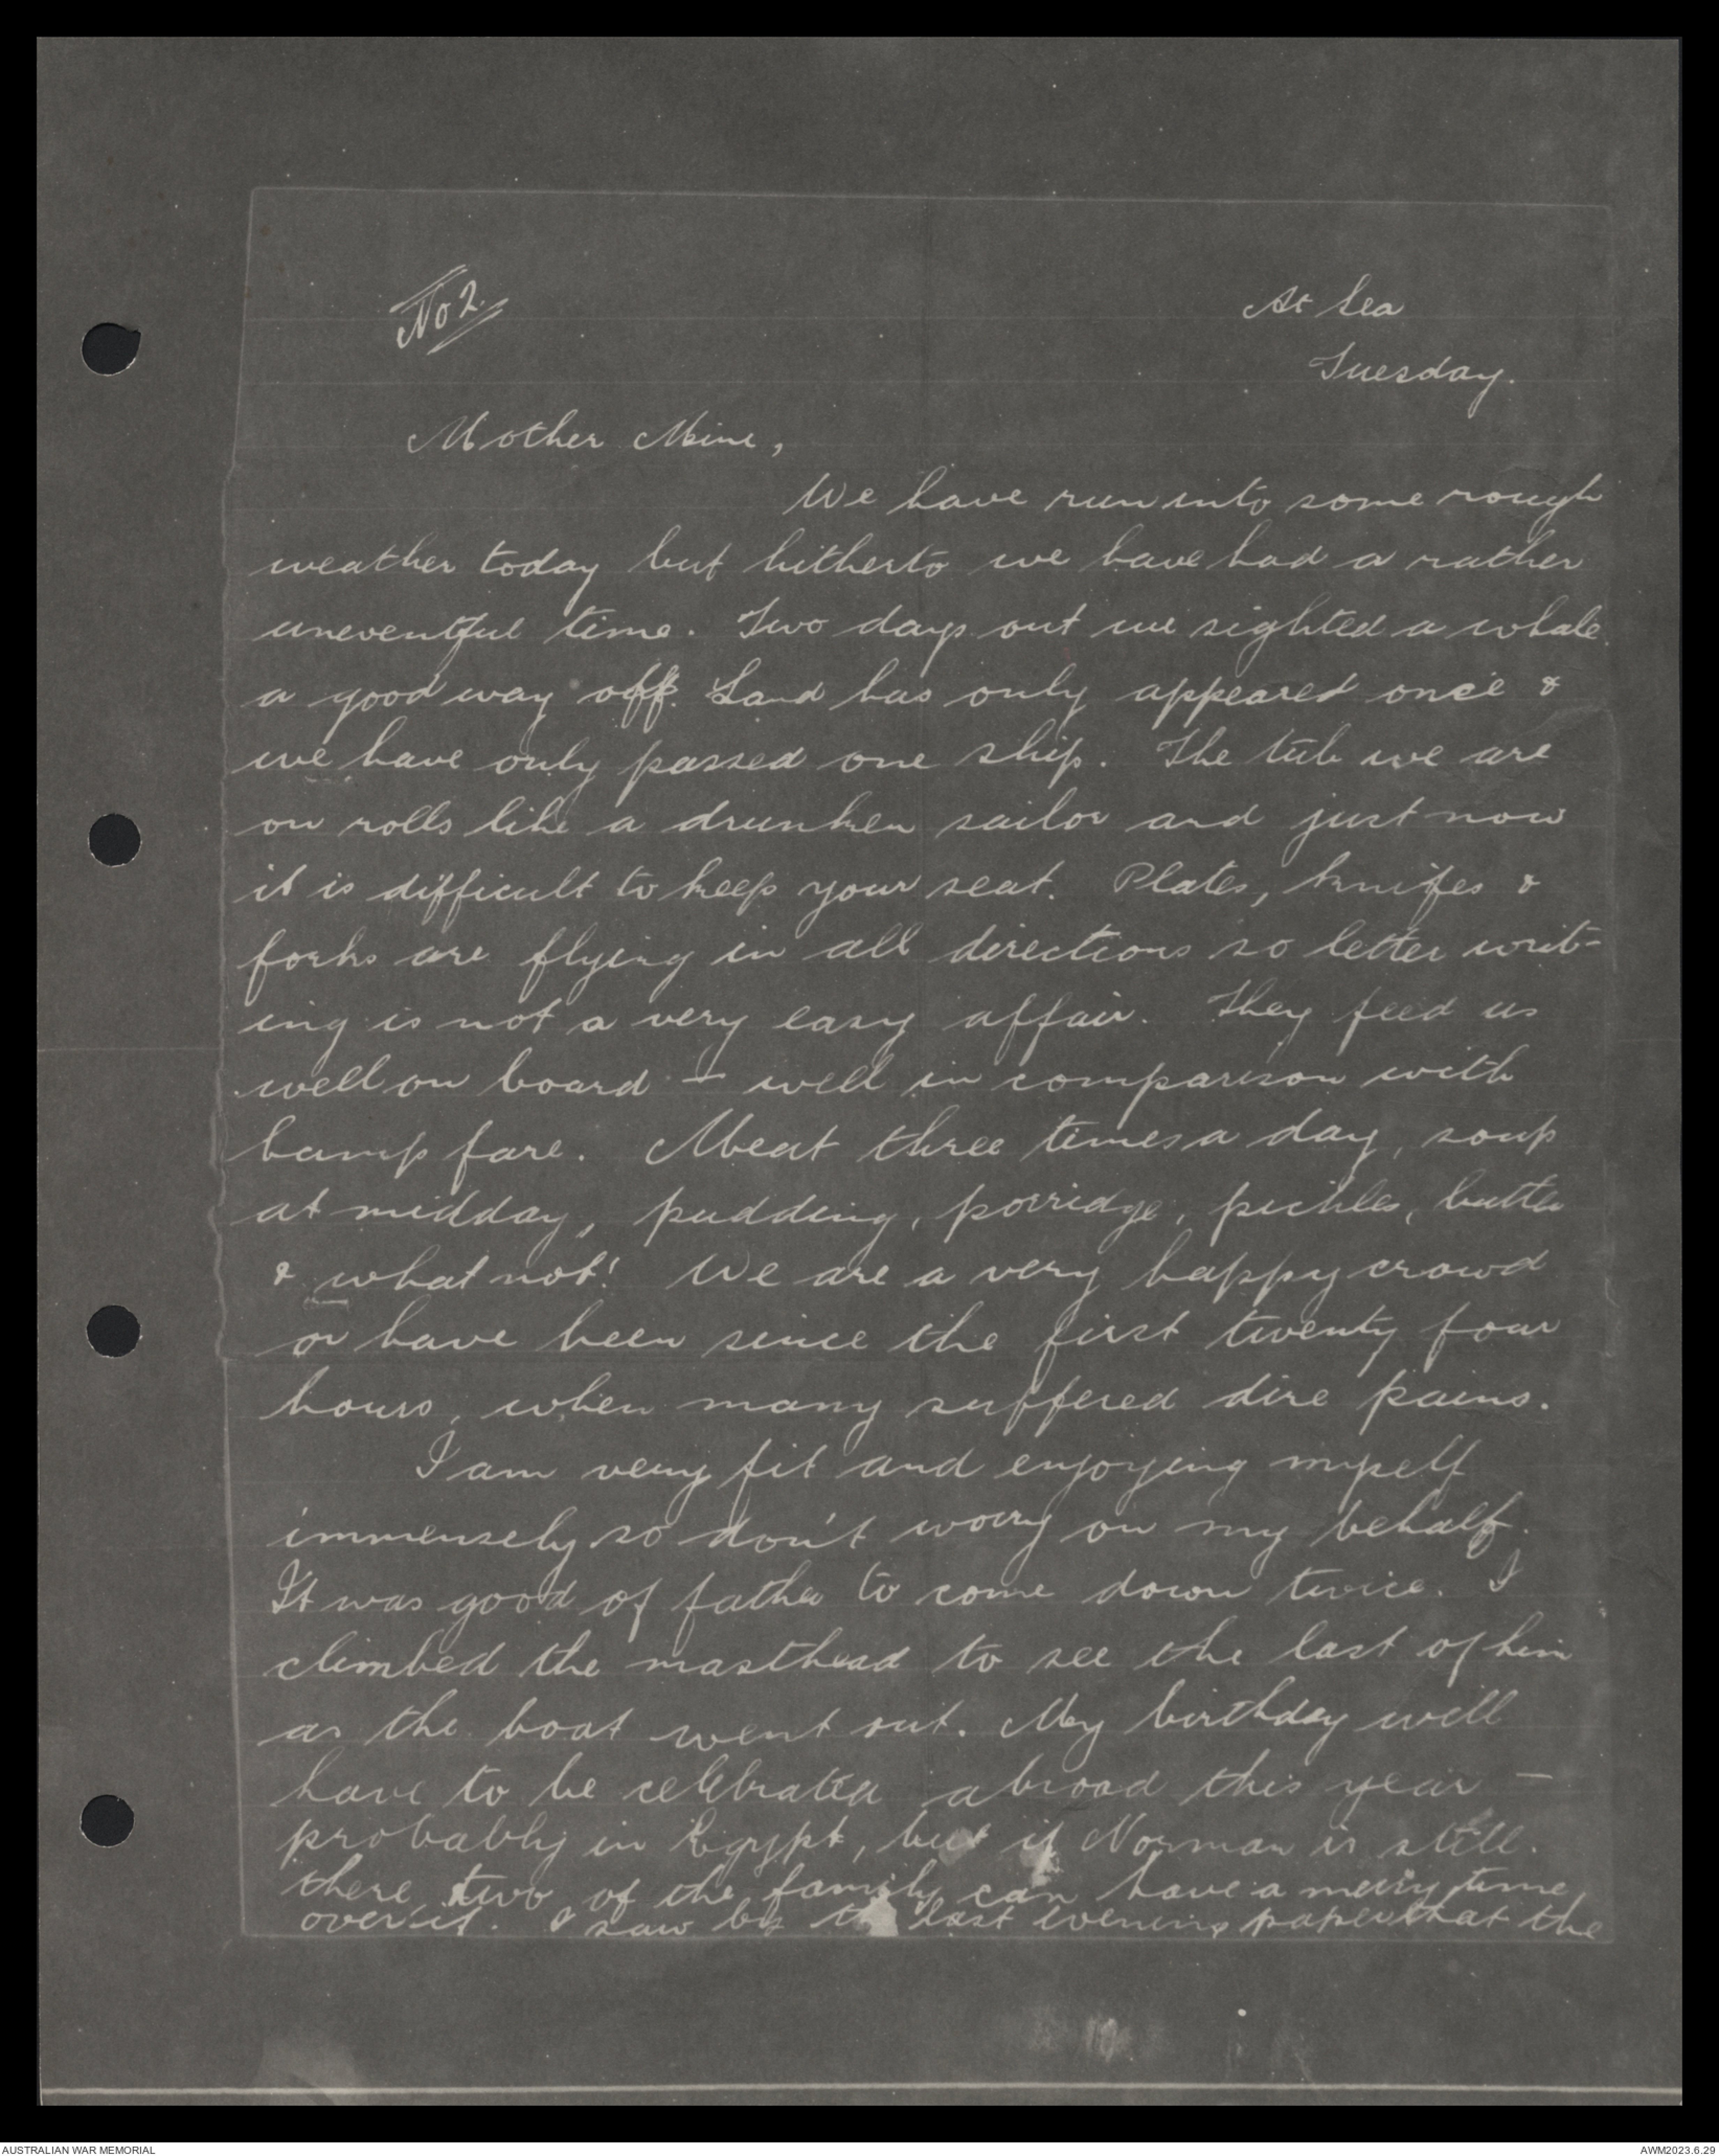 No 2.
At Sea
Tuesday.
Mother Mine,
We have run into some rough
weather today but hitherto we have had a rather
uneventful time. Two days out we sighted a whale
a good way off. Land has only appeared once &
we have only passed one ship. The tub we are
on rolls like a drunken sailor and just now
it is difficult to keep your seat. Plates, knifes &
forks are flying in all directions so letter writ-
ing is not a very easy affair. They feed us
well on board - well in comparison with
camp fare. Meat three times a day, soup
at midday, pudding, porridge, pickles, butter
& what not! We are a very happy crowd
or have been since the first twenty four
hours, when many suffered dire pains.
I am very fit and enjoying myself
immensely so don't worry on my behalf.
It was good of father to come down twice. I
climbed the masthead to see the last of him
as the boat went out. My birthday will
have to be celebrated abroad this year -
probably in Egypt, but if Norman is still
there two of the family can have a merry time
over it. I saw by the last evening paper that the
AUSTRALIAN WAR MEMORIAL
AWM2023.6.29